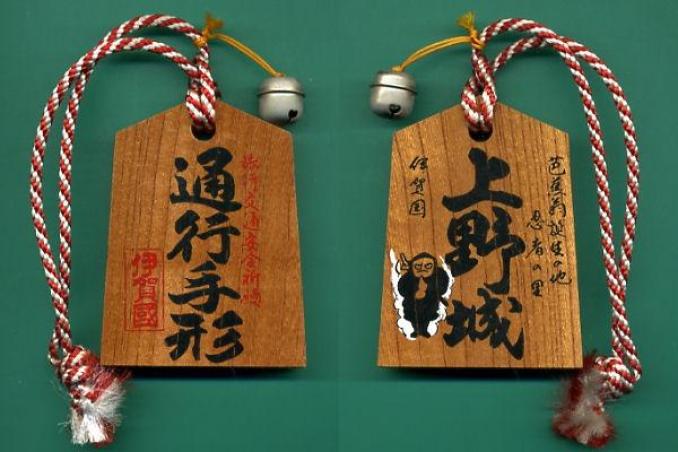 旅行交通安全祈祷
通行手形
伊賀國
芭蕉翁誕生の地
忍者の里
上野城
伊賀国